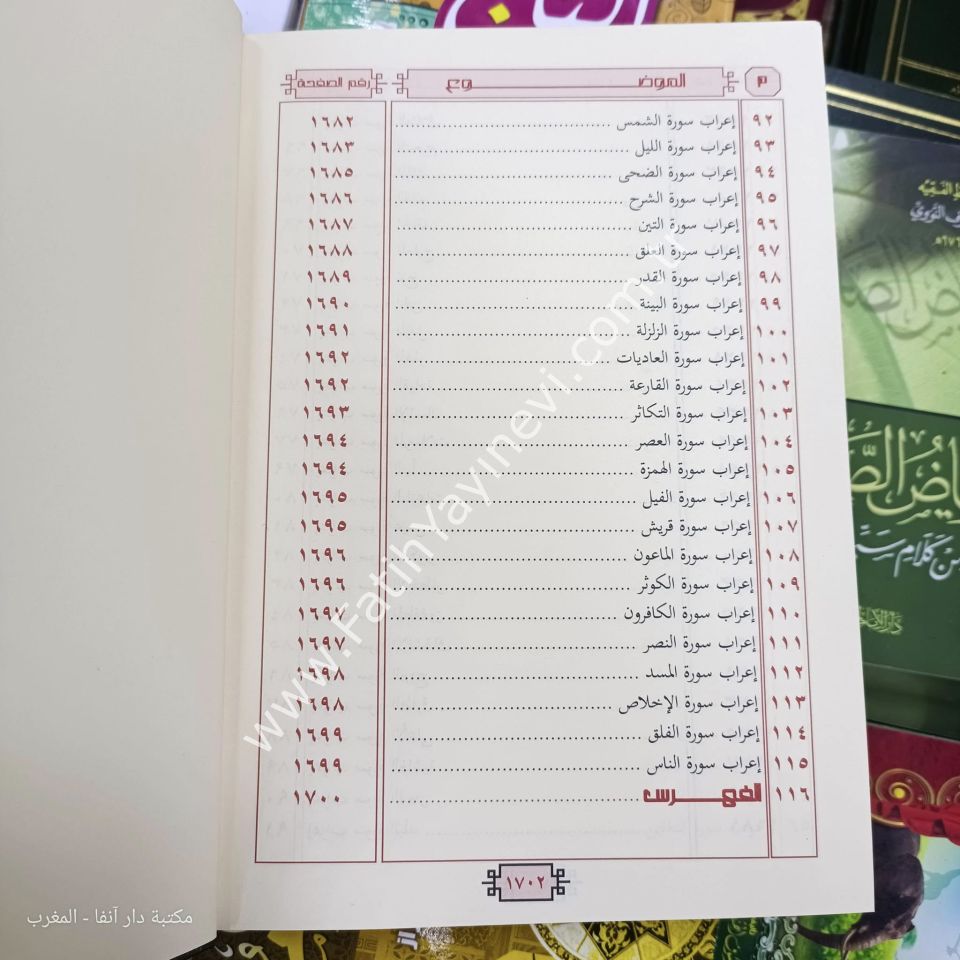 م الموضوع رقم الصفحة
٩٢ إعراب سورة الشمس ١٦٨٢
٩٣ إعراب سورة الليل ١٦٨٣
٩٤ إعراب سورة الضحى ١٦٨٥
٩٥ إعراب سورة الشرح ١٦٨٦
٩٦ إعراب سورة التين ١٦٨٧
٩٧ إعراب سورة العلق ١٦٨٨
٩٨ إعراب سورة القدر ١٦٨٩
٩٩ إعراب سورة البينة ١٦٩٠
١٠٠ إعراب سورة الزلزلة ١٦٩١
١٠١ إعراب سورة العاديات ١٦٩٢
١٠٢ إعراب سورة القارعة ١٦٩٢
١٠٣ إعراب سورة التكاثر ١٦٩٣
١٠٤ إعراب سورة العصر ١٦٩٤
١٠٥ إعراب سورة الهمزة ١٦٩٤
١٠٦ إعراب سورة الفيل ١٦٩٥
١٠٧ إعراب سورة قريش ١٦٩٥
١٠٨ إعراب سورة الماعون ١٦٩٦
١٠٩ إعراب سورة الكوثر ١٦٩٦
١١٠ إعراب سورة الكافرون ١٦٩٧
١١١ إعراب سورة النصر ١٦٩٧
١١٢ إعراب سورة المسد ١٦٩٨
١١٣ إعراب سورة الإخلاص ١٦٩٨
١١٤ إعراب سورة الفلق ١٦٩٩
١١٥ إعراب سورة الناس ١٦٩٩
١١٦ الفهرس ١٧٠٠
١٧٠٢
www.FatihYayinevi.com.tr
مكتبة دار آنفا - المغرب
من كلام